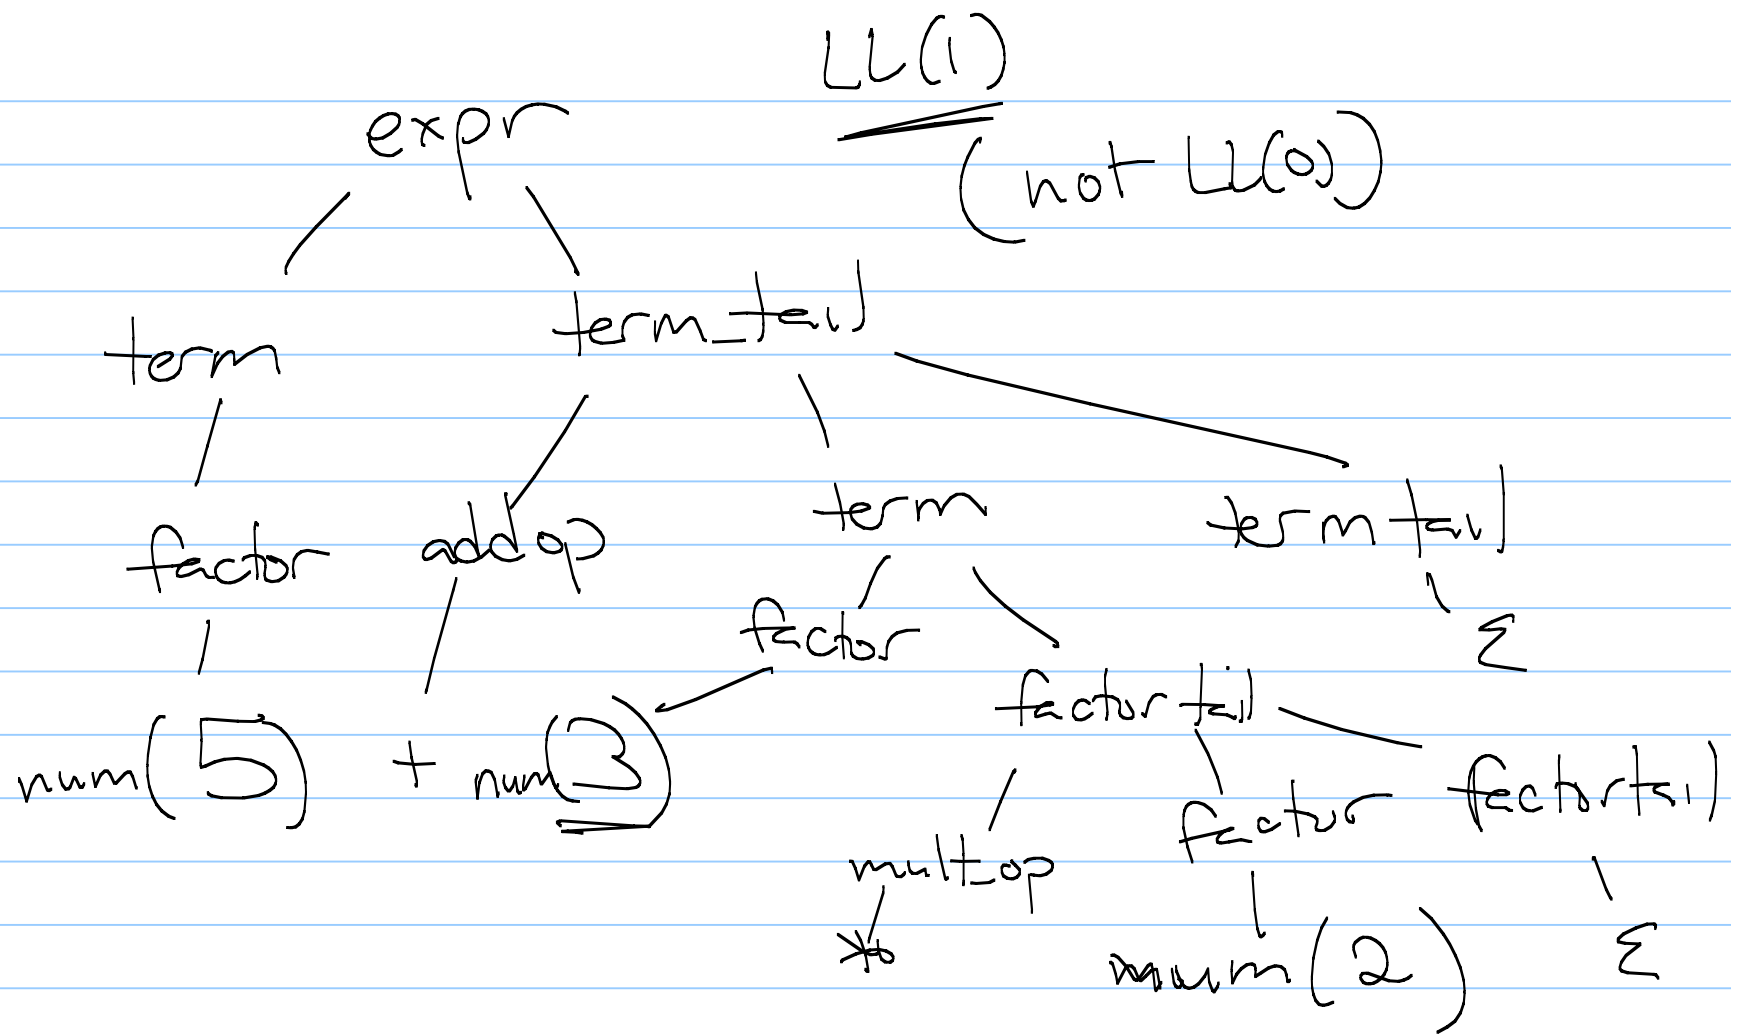 LL(1)
expr
(not LL(0))
term term_tail
factor addop term termtail
factor ε
factortail
num(5) + num(3)
mult_op factor factortail
* num(2) ε